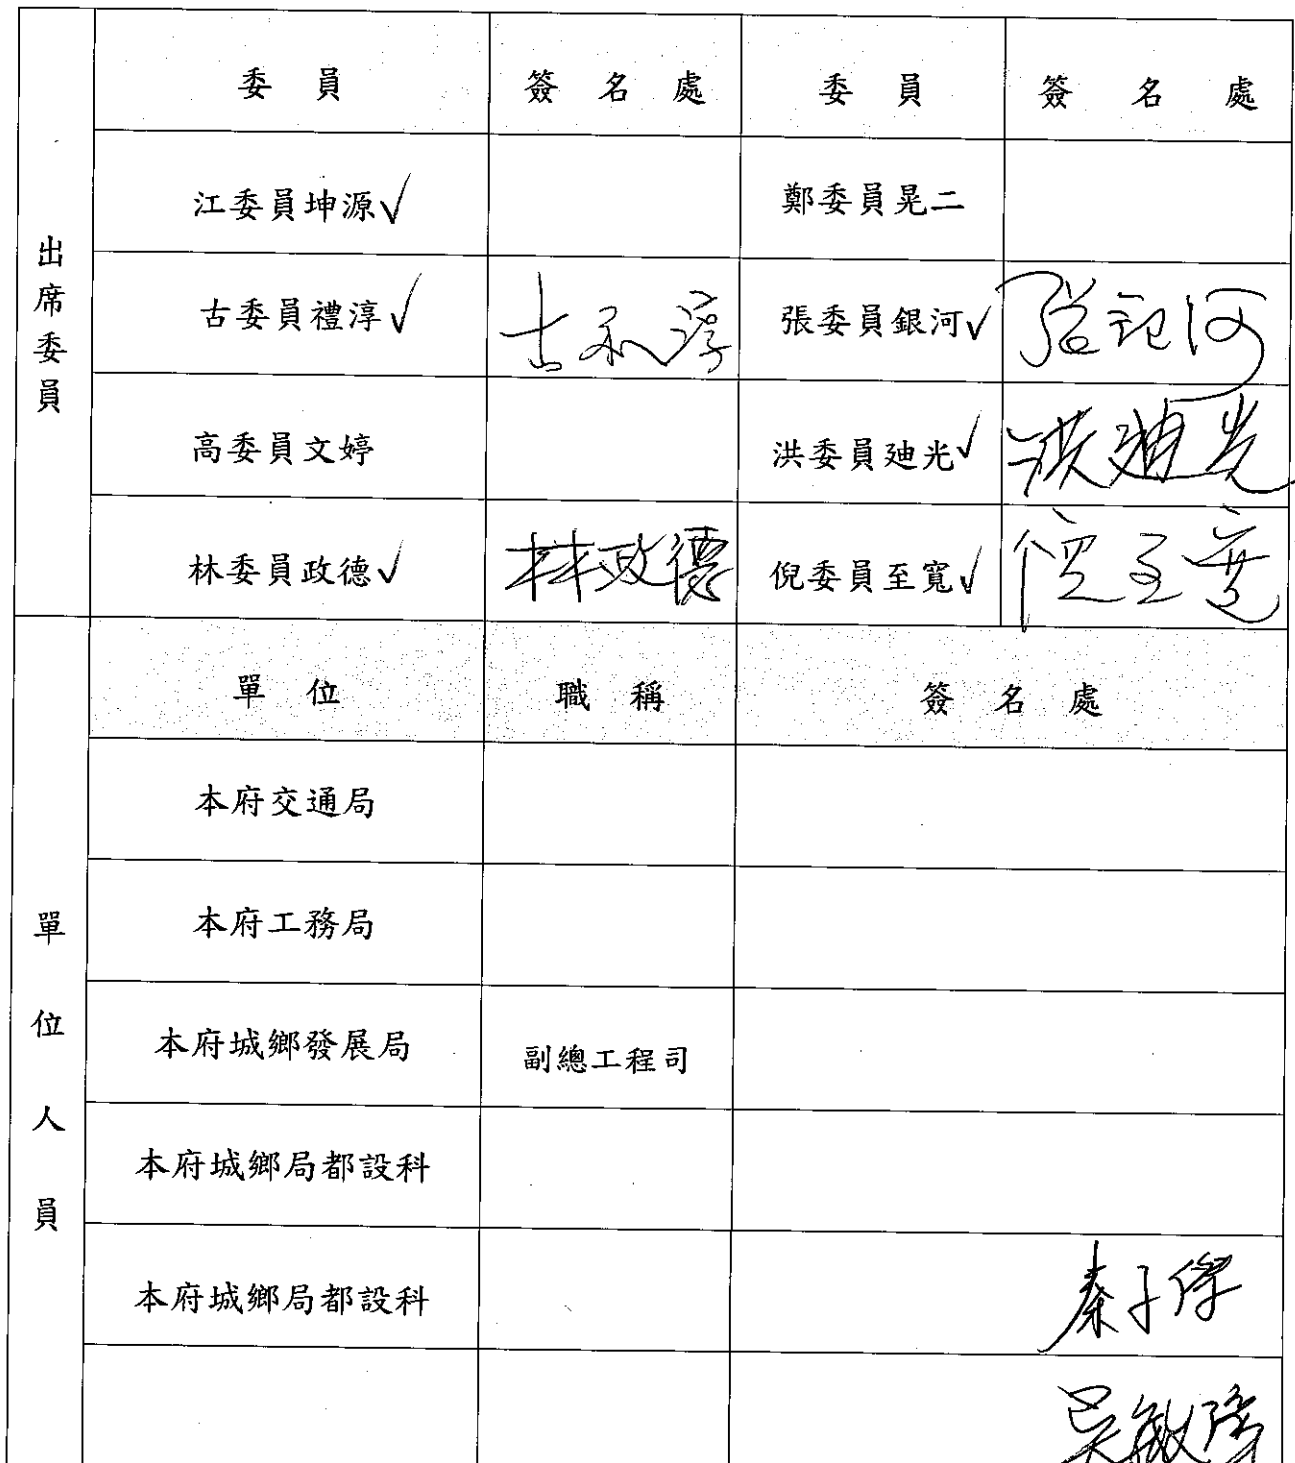 出席委員
委員 簽名處 委員 簽名處
江委員坤源✓ 鄭委員晃二
古委員禮淳✓ 古礼淳 張委員銀河✓ 張銀河
高委員文婷 洪委員廸光✓ 洪廸光
林委員政德✓ 林政德 倪委員至寬✓ 倪至寬
單位人員
單位 職稱 簽名處
本府交通局
本府工務局
本府城鄉發展局 副總工程司
本府城鄉局都設科
本府城鄉局都設科 秦子傑
吳敏